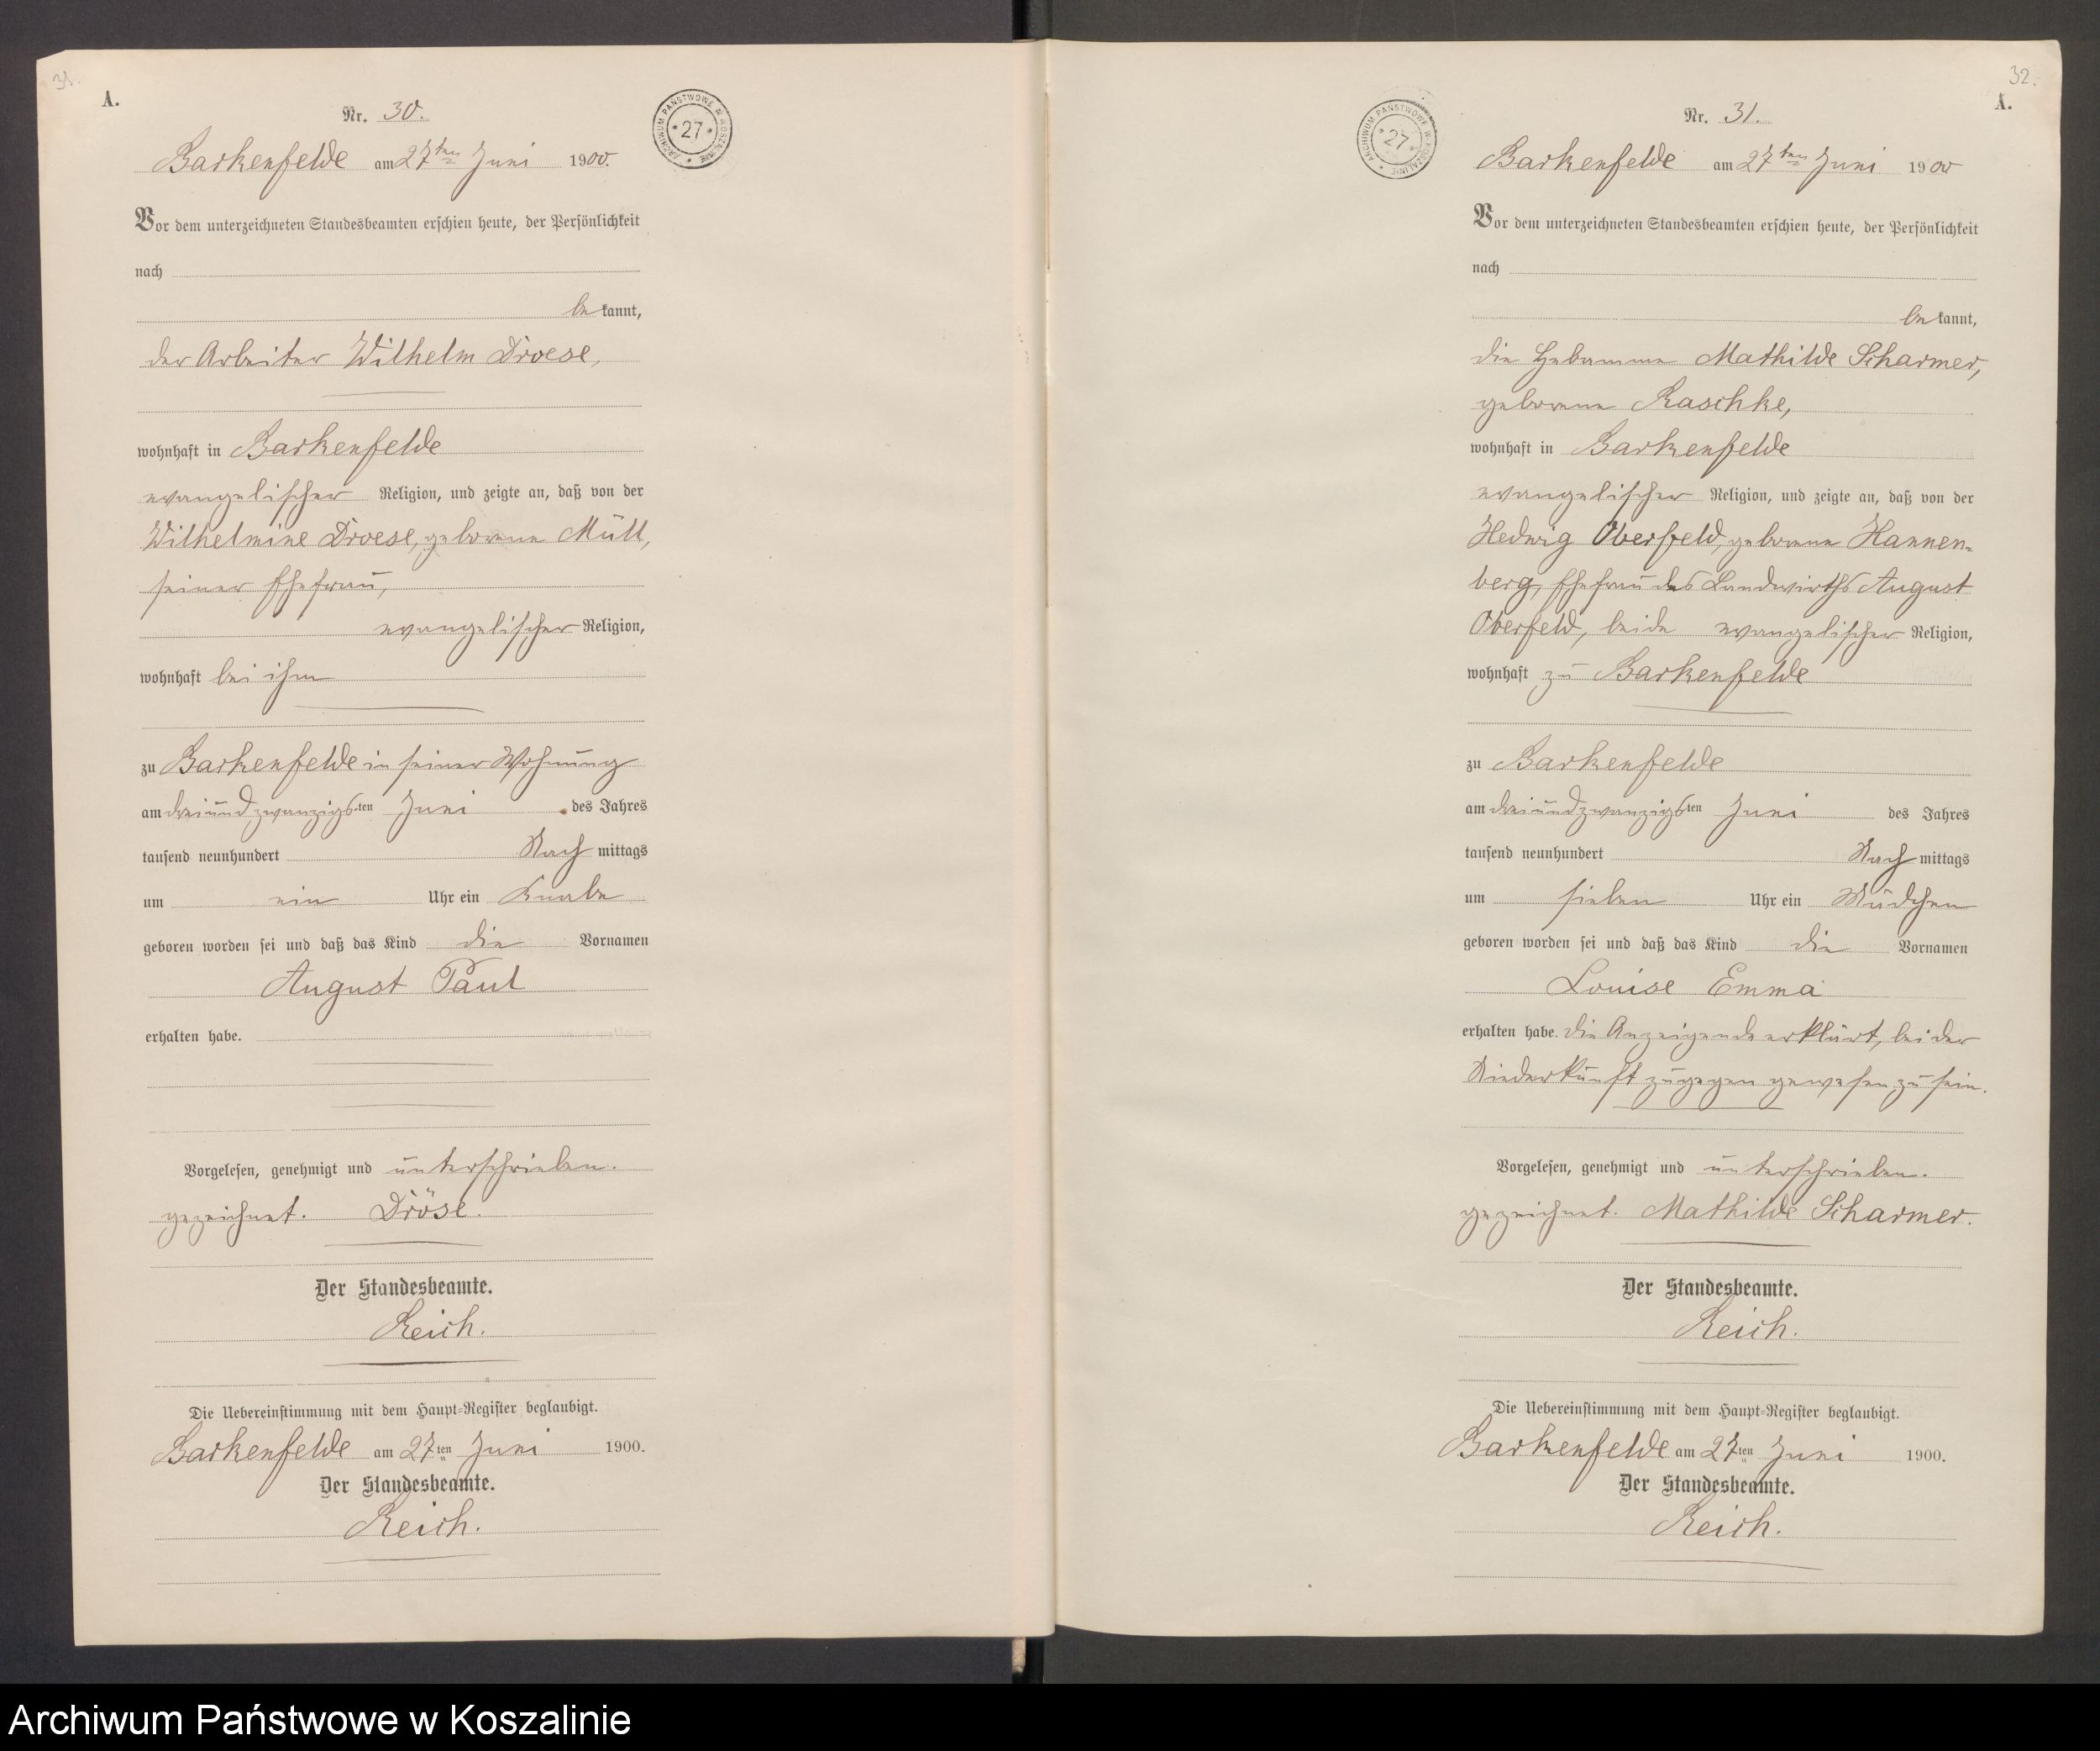 31.
A.
Nr. 30.
ARCHIWUM PAŃSTWOWE W KOSZALINIE * 27 *
Barkenfelde am 27ten Juni 1900.
Vor dem unterzeichneten Standesbeamten erschien heute, der Persönlichkeit
nach
be kannt,
der Arbeiter Wilhelm Droese,
wohnhaft in Barkenfelde
evangelischer Religion, und zeigte an, daß von der
Wilhelmine Droese, geborene Müll,
seiner Ehefrau,
evangelischer Religion,
wohnhaft bei ihm
zu Barkenfelde in seiner Wohnung
am dreiundzwanzigsten Juni des Jahres
tausend neunhundert Nach mittags
um ein Uhr ein Knabe
geboren worden sei und daß das Kind die Vornamen
August Paul
erhalten habe.
Vorgelesen, genehmigt und unterschrieben.
gezeichnet. Dröse.
Der Standesbeamte.
Reich.
Die Uebereinstimmung mit dem Haupt-Register beglaubigt.
Barkenfelde am 27ten Juni 1900.
Der Standesbeamte.
Reich.
32.
A.
Nr. 31.
ARCHIWUM PAŃSTWOWE W KOSZALINIE * 27 *
Barkenfelde am 27ten Juni 1900
Vor dem unterzeichneten Standesbeamten erschien heute, der Persönlichkeit
nach
be kannt,
die Hebamme Mathilde Scharmer,
geborene Raschke,
wohnhaft in Barkenfelde
evangelischer Religion, und zeigte an, daß von der
Hedwig Oberfeld, geborene Hannen-
berg, Ehefrau des Landwirths August
Oberfeld, beide evangelischer Religion,
wohnhaft zu Barkenfelde
zu Barkenfelde
am dreiundzwanzigsten Juni des Jahres
tausend neunhundert Nach mittags
um sieben Uhr ein Mädchen
geboren worden sei und daß das Kind die Vornamen
Louise Emma
erhalten habe. Die Anzeigende erklärt, bei der
Niederkunft zugegen gewesen zu sein.
Vorgelesen, genehmigt und unterschrieben.
gezeichnet. Mathilde Scharmer.
Der Standesbeamte.
Reich.
Die Uebereinstimmung mit dem Haupt-Register beglaubigt.
Barkenfelde am 27ten Juni 1900.
Der Standesbeamte.
Reich.
Archiwum Państwowe w Koszalinie